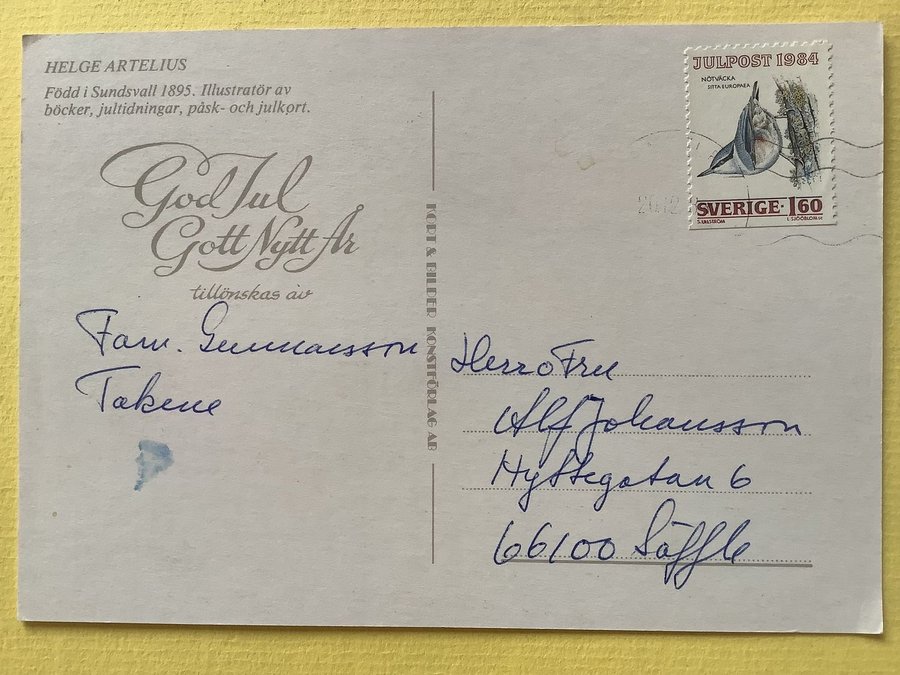 HELGE ARTELIUS
Född i Sundsvall 1895. Illustratör av
böcker, jultidningar, påsk- och julkort.
God Jul
Gott Nytt År
tillönskas av
Fam. Gunnarsson
Takene
KORT & BILDER KONSTFÖRLAG AB
JULPOST 1984
NÖTVÄCKA
SITTA EUROPAEA
SVERIGE · 1.60
Herr o Fru
Alf Johansson
Hyttegatan 6
66100 Säffle